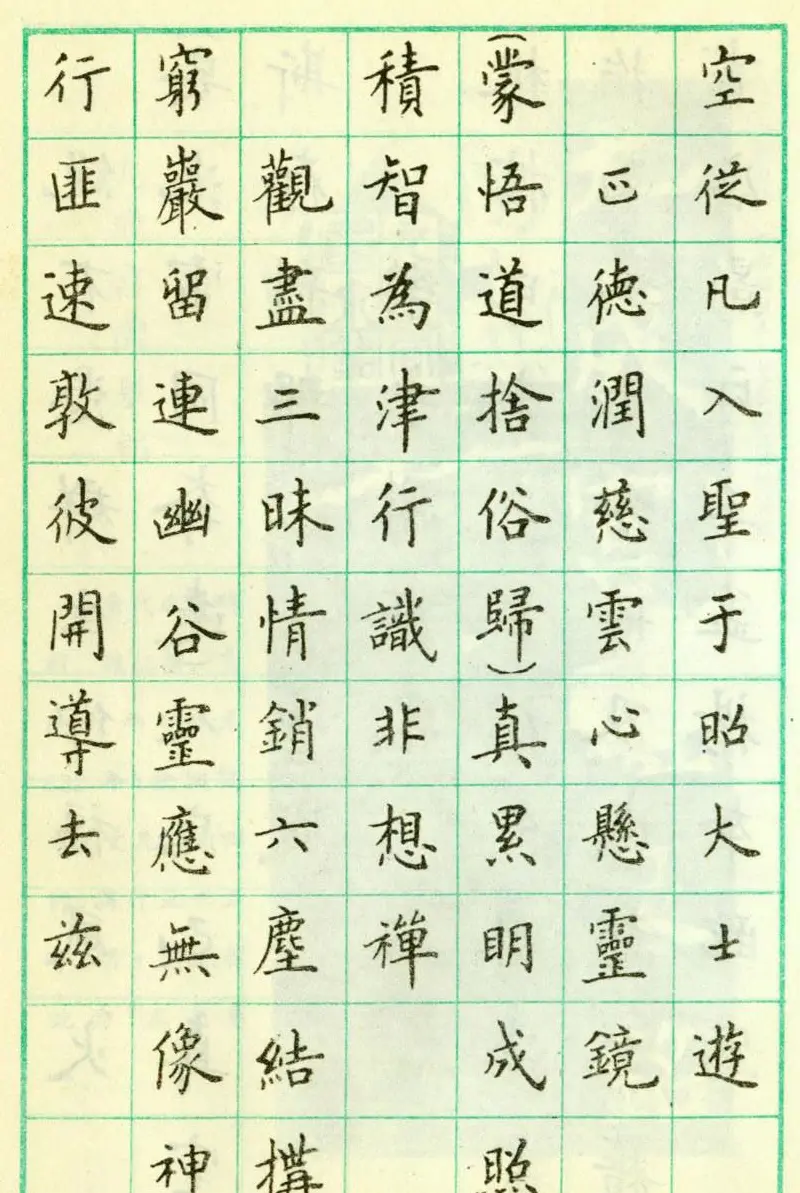 空從凡入聖于昭大士遊
正德潤慈雲心懸靈鏡
(蒙悟道捨俗歸)真累明成照
積智為津行識非想禪
觀盡三昧情銷六塵結構
窮巖留連幽谷靈應無像神
行匪速敦彼開導去茲